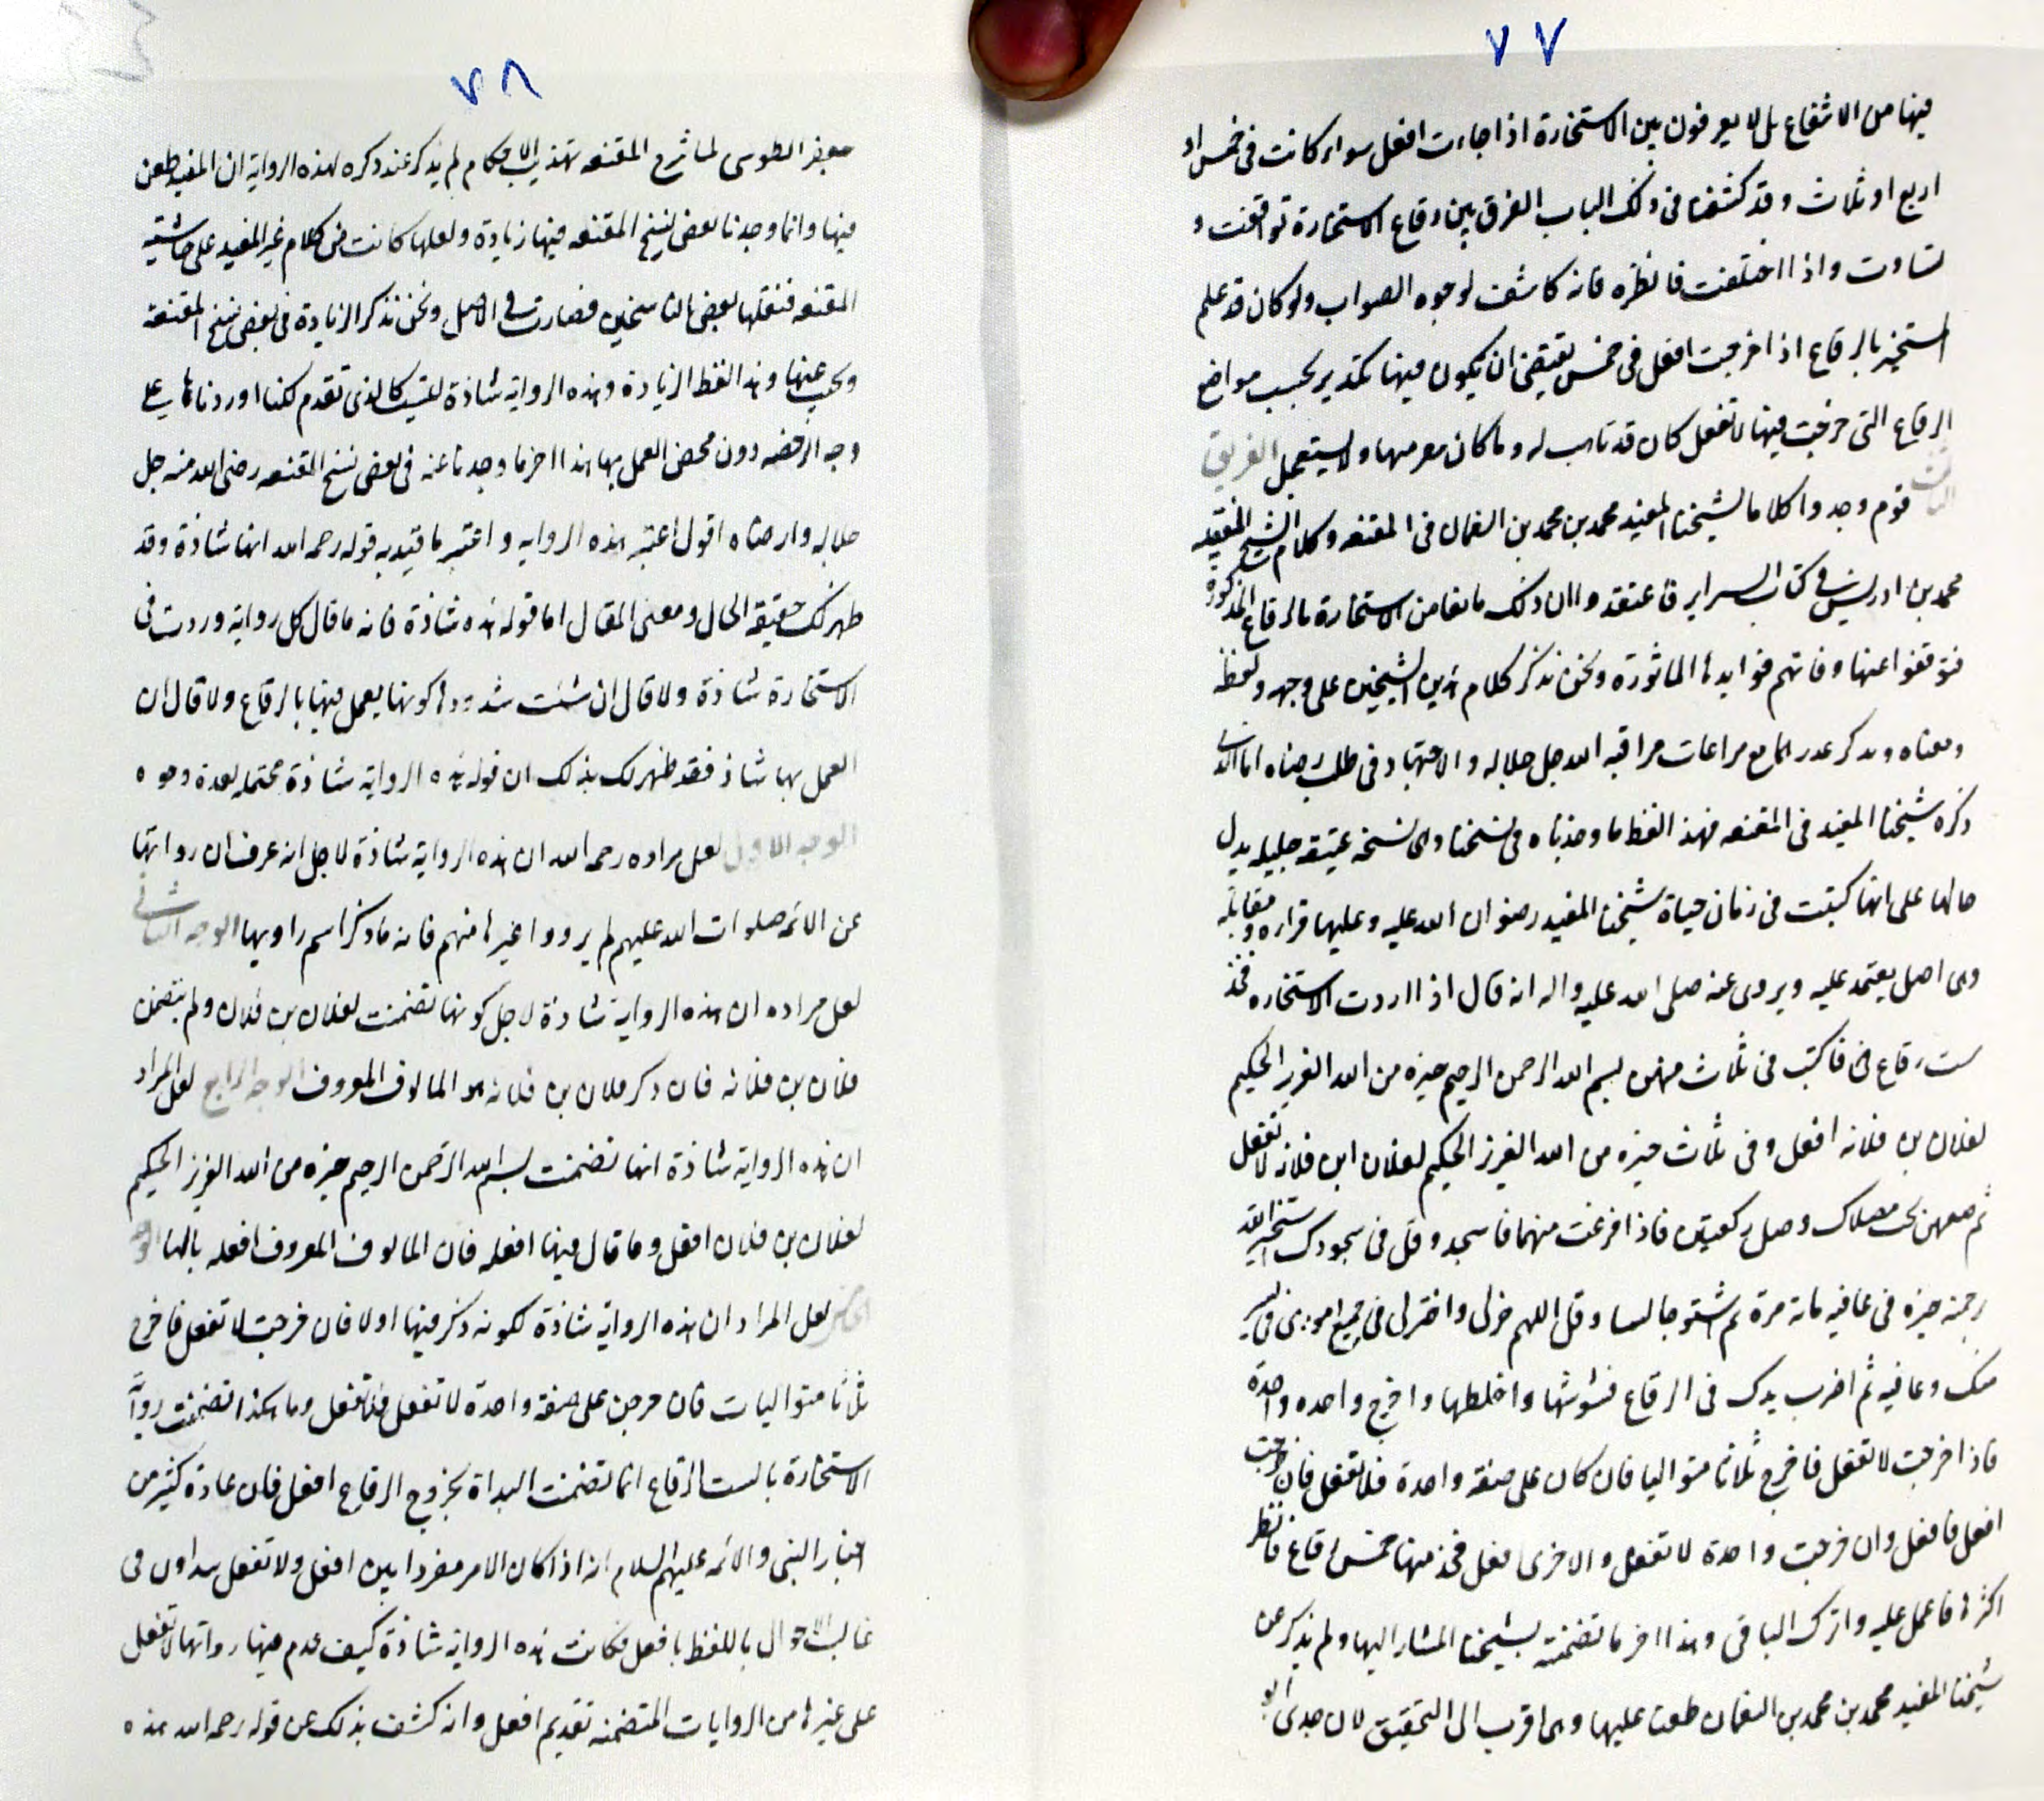 ٧٧
فيها من الانتفاع بل لا يعرفون بين الاستخارة اذا جاءت افعل سواء كانت في خمس او
اربع او ثلاث وقد كشفنا في ذلك الباب الفرق بين رقاع الاستخارة توافقت و
تساوت واذا اختلفت فانظره فانه كاشف لوجوه الصواب ولو كان قد علم
المستخير بالرقاع اذا خرجت افعل في خمس يقتضي ان يكون فيها تكدير بحسب مواضع
الرقاع التي خرجت فيها لا تفعل كان قد تاهب له وما كان مع ربها ولا يستعمل الفريق
قوم وجدوا كلاما لشيخنا المفيد محمد بن محمد بن النعمان في المقنعه وكلام الشيخ الفقيه
محمد بن ادريس في كتاب السراير فاعتقدوا ان ذلك مانعا من الاستخارة بالرقاع المذكورة
فتوقفوا عنها وفاتهم فوايدها الماثورة ونحن نذكر كلام هذين الشيخين على وجهه ولفظه
ومعناه ونذكر عذرا مع مراعات مراقبه الله جل جلاله والاجتهاد في طلب رضاه اما الذي
ذكره شيخنا المفيد في المقنعه فهذا لفظ ما وجدناه في نسختنا وهي نسخه عتيقه جليله يدل
حالها على انها كتبت في زمان حياة شيخنا المفيد رضوان الله عليه وعليها قراءه ومقابله
وهي اصل يعتمد عليه ويروى عنه صلى الله عليه واله انه قال اذا اردت الاستخاره فخذ
ست رقاع فاكتب في ثلاث منهن بسم الله الرحمن الرحيم خيره من الله العزيز الحكيم
لفلان بن فلانه افعل وفي ثلاث خيره من الله العزيز الحكيم لفلان ابن فلانه لا تفعل
ثم ضعهن تحت مصلاك وصل ركعتين فاذا فرغت منهما فاسجد وقل في سجودك استخير الله
برحمته خيره في عافيه مائه مرة ثم استو جالسا وقل اللهم خر لي واختر لي في جميع اموري في يسر
منك وعافيه ثم اضرب يدك في الرقاع فشوشها واخلطها واخرج واحده واحدة
فاذا خرجت لا تفعل فاخرج ثلاثا متواليا فان كان على صفه واحدة فلا تفعل فان خرجت
افعل فافعل وان خرجت واحدة لا تفعل والاخرى افعل فخذ منها خمس رقاع فانظر
اكثرها فاعمل عليه واترك الباقي وهذا اخر ما تضمنته لشيخنا المشار اليها ولم يذكر عن
شيخنا المفيد محمد بن محمد بن النعمان طعنا عليها وهي اقرب الى التحقيق لان جدي ابو
٧٨
جعفر الطوسي لما شرح المقنعه تهذيب الاحكام لم يذكر عند ذكره لهذه الرواية ان المفيد طعن
فيها وانما وجدنا بعض نسخ المقنعه فيها زيادة ولعلها كانت من كلام غير المفيد على حاشيه
المقنعه فنقلها بعض الناسخين فصارت في الاصل ونحن نذكر الزيادة في بعض نسخ المقنعه
ونجيب عنها وهذا لفظ الزيادة وهذه الروايه شاذة ليست كالذي تقدم لكنا اوردناها على
وجه الرخصه دون محض العمل بها هذا اخر ما وجدناه عنه في بعض نسخ المقنعه رضى الله منه جل
جلاله وارضاه اقول اعتبر هذه الروايه واعتبر ما قيد به قوله رحمه الله انها شاذة وقد
ظهر لك حقيقه الحال ومعنى المقال اما قوله هذه شاذة فانه ما قال كل روايه وردت في
الاستخارة شاذة ولا قال ان شئت شذوذها كونها يعمل فيها بالرقاع ولا قال ان
العمل بها شاذ فقد ظهر لك بذلك ان قوله هذه الروايه شاذة محتمله لعدة وجوه
الوجه الاول لعل مراده رحمه الله ان هذه الروايه شاذة لاجل انه عرف ان رواتها
عن الائمه صلوات الله عليهم لم يرووا غيرها منهم فانه ما ذكر اسم راويها الوجه الثاني
لعل مراده ان هذه الرواية شاذة لاجل كونها تضمنت لفلان بن فلان ولم يتضمن
فلان بن فلانه فان ذكر فلان بن فلانه هو المالوف المعروف الوجه الرابع لعل المراد
ان هذه الروايه شاذة انها تضمنت بسم الله الرحمن الرحيم خيره من الله العزيز الحكيم
لفلان بن فلان افعل وما قال فيها افعله فان المالوف المعروف افعله بالها الوجه
الخامس لعل المراد ان هذه الروايه شاذة لكونه ذكر فيها اولا فان خرجت لا تفعل فاخرج
ثلاثا متواليات فان خرجن على صفه واحدة لا تفعل فلا تفعل وما هكذا تضمنت روايات
الاستخارة بالست الرقاع انما تضمنت البداة بخروج الرقاع افعل فان عادة كثير من
اخبار النبي والائمه عليهم السلام انه اذا كان الامر مفردا بين افعل ولا تفعل يبداون في
غالب الاحوال باللفظ بافعل فكانت هذه الروايه شاذة كيف قدم فيها رواتها لا تفعل
على غيرها من الروايات المتضمنه تقديم افعل وانه كشف بذلك عن قوله رحمه الله هذه